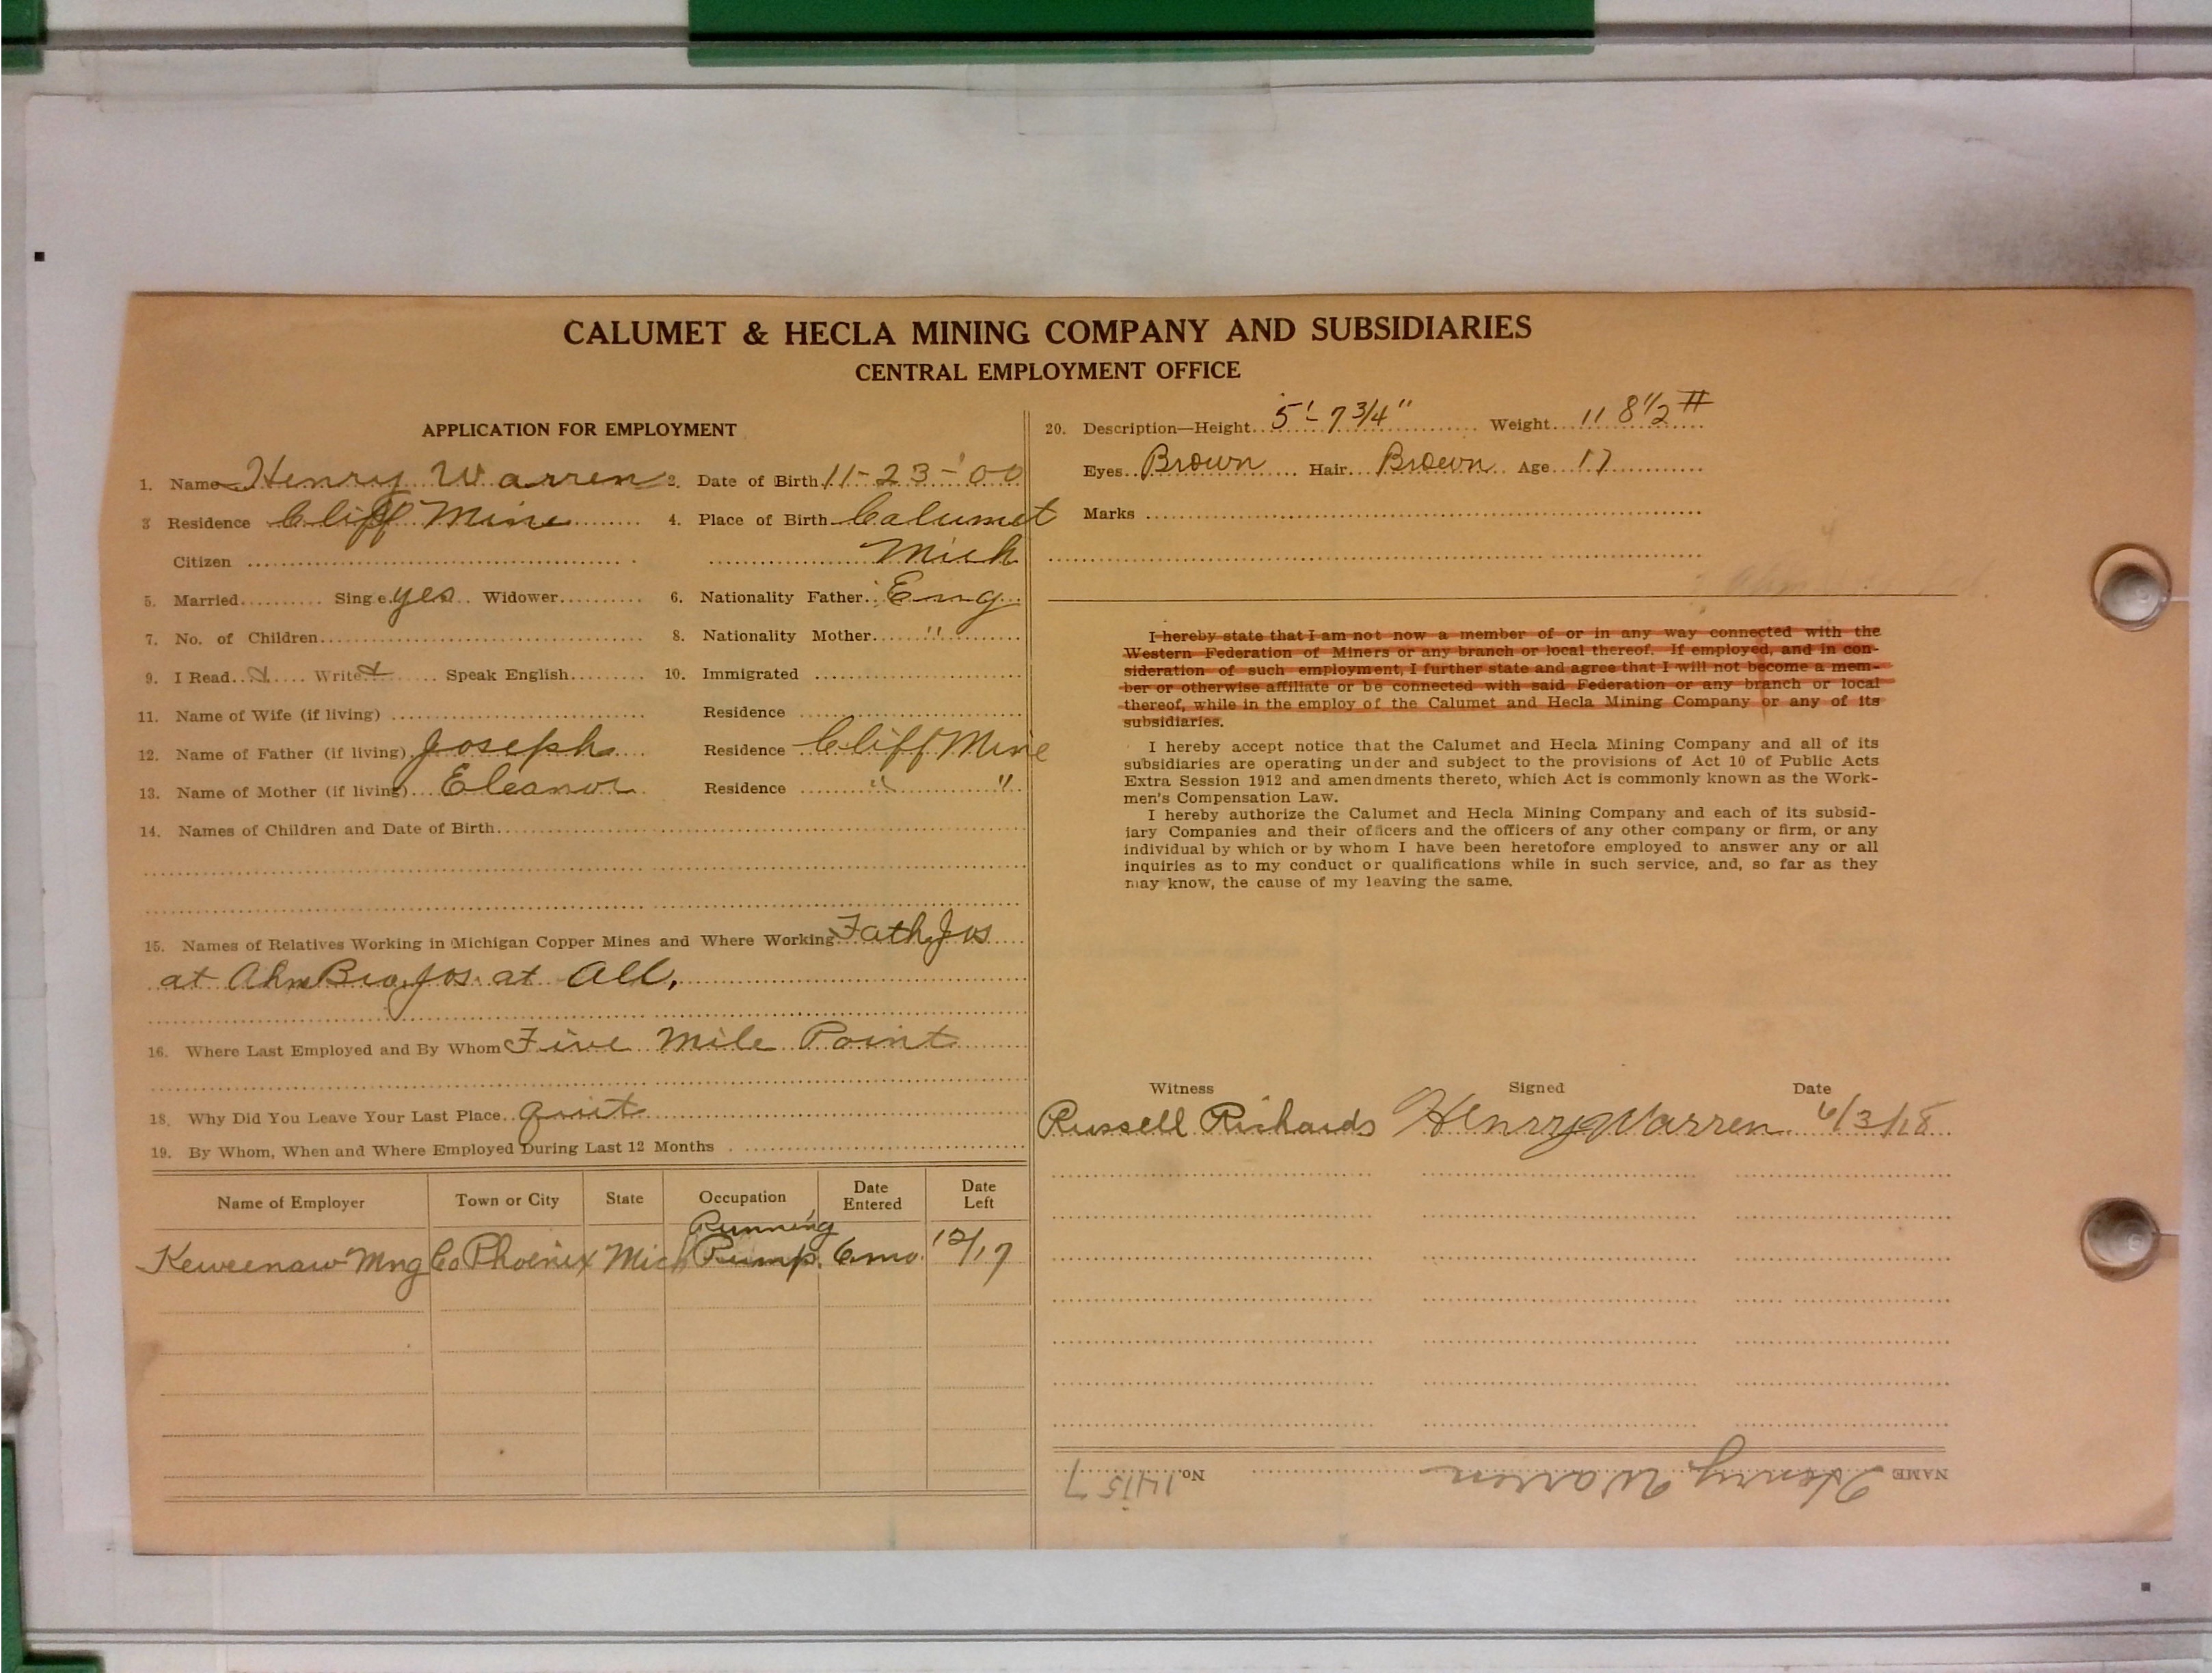 CALUMET & HECLA MINING COMPANY AND SUBSIDIARIES
CENTRAL EMPLOYMENT OFFICE
APPLICATION FOR EMPLOYMENT
1. Name Henry Warren 2. Date of Birth 11-23-'00
3 Residence Cliff Mine 4. Place of Birth Calumet
Citizen Mich
5. Married Single yes Widower 6. Nationality Father Eng
7. No. of Children 8. Nationality Mother "
9. I Read Write Speak English 10. Immigrated
11. Name of Wife (if living) Residence
12. Name of Father (if living) Joseph Residence Cliff Mine
13. Name of Mother (if living) Eleanor Residence " "
14. Names of Children and Date of Birth
15. Names of Relatives Working in Michigan Copper Mines and Where Working Fath. Jos
at Ahm Bro. Jos. at All.
16. Where Last Employed and By Whom Five Mile Point
18. Why Did You Leave Your Last Place quit
19. By Whom, When and Where Employed During Last 12 Months
Name of Employer Town or City State Occupation Date Entered Date Left
Keweenaw Mng Co Phoenix Mich Running Pump. 6 mo. 12/17
20. Description—Height 5'-7 3/4" Weight 118 1/2 #
Eyes Brown Hair Brown Age 17
Marks
I hereby state that I am not now a member of or in any way connected with the
Western Federation of Miners or any branch or local thereof. If employed, and in con-
sideration of such employment, I further state and agree that I will not become a mem-
ber or otherwise affiliate or be connected with said Federation or any branch or local
thereof, while in the employ of the Calumet and Hecla Mining Company or any of its
subsidiaries.
I hereby accept notice that the Calumet and Hecla Mining Company and all of its
subsidiaries are operating under and subject to the provisions of Act 10 of Public Acts
Extra Session 1912 and amendments thereto, which Act is commonly known as the Work-
men's Compensation Law.
I hereby authorize the Calumet and Hecla Mining Company and each of its subsid-
iary Companies and their officers and the officers of any other company or firm, or any
individual by which or by whom I have been heretofore employed to answer any or all
inquiries as to my conduct or qualifications while in such service, and, so far as they
may know, the cause of my leaving the same.
Witness Signed Date
Russell Richards Henry Warren 6/3/18
NAME Henry Warren No. 14157